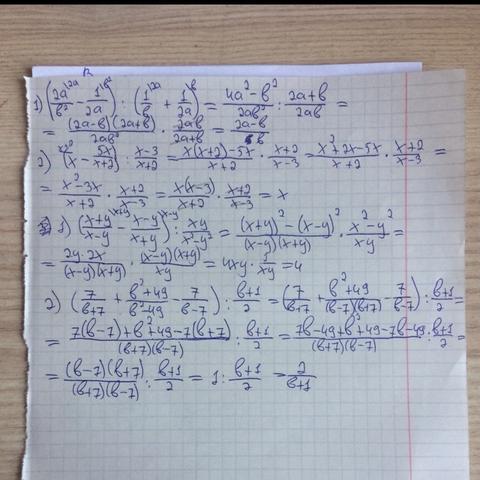 1) (2a/b² - 1/2a) : (1/b + 1/2a) = (4a² - b²)/2ab² : (2a+b)/2ab =
= (2a-b)(2a+b)/2ab² · 2ab/(2a+b) = (2a-b)/b
2) (x - 5x/(x+2)) : (x-3)/(x+2) = (x(x+2)-5x)/(x+2) · (x+2)/(x-3) = (x²+2x-5x)/(x+2) · (x+2)/(x-3) =
= (x²-3x)/(x+2) · (x+2)/(x-3) = x(x-3)/(x+2) · (x+2)/(x-3) = x
1) ((x+y)/(x-y) - (x-y)/(x+y)) : xy/(x²-y²) = ((x+y)² - (x-y)²)/(x-y)(x+y) · (x²-y²)/xy =
= 2y·2x/(x-y)(x+y) · (x-y)(x+y)/xy = 4xy · 1/xy = 4
2) (7/(b+7) + (b²+49)/(b²-49) - 7/(b-7)) : (b+1)/2 = (7/(b+7) + (b²+49)/(b-7)(b+7) - 7/(b-7)) : (b+1)/2 =
= (7(b-7)+b²+49-7(b+7))/(b+7)(b-7) : (b+1)/2 = (7b-49+b²+49-7b-49)/(b+7)(b-7) : (b+1)/2 =
= (b-7)(b+7)/(b+7)(b-7) : (b+1)/2 = 1 : (b+1)/2 = 2/(b+1)